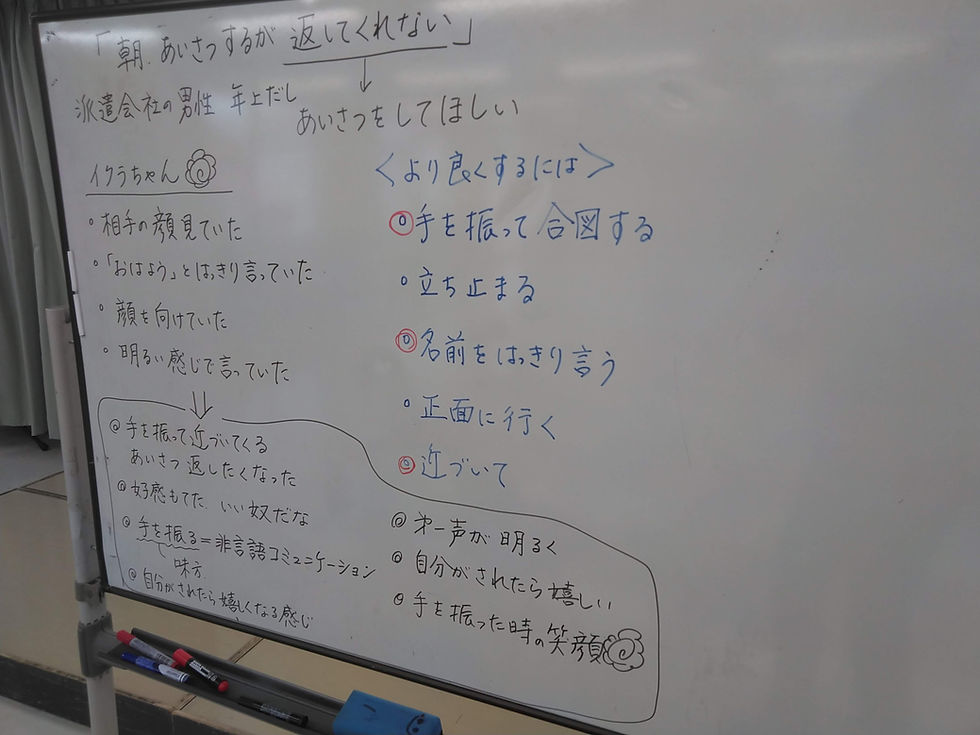 「朝、あいさつするが 返してくれない」
↓
派遣会社の男性 年上だし
あいさつをしてほしい
イクラちゃん
・相手の顔見ていた
・「おはよう」とはっきり言っていた
・顔を向けていた
・明るい感じで言っていた
⇓
◎手を振って近づいてくる
あいさつ 返したくなった
◎好感もてた。いい奴だな
◎手を振る=非言語コミュニケーション
味方
◎自分がされたら嬉しくなる感じ
<より良くするには>
◎手を振って合図する
・立ち止まる
◎名前をはっきり言う
・正面に行く
◎近づいて
◎第一声が明るく
◎自分がされたら嬉しい
◎手を振った時の笑顔